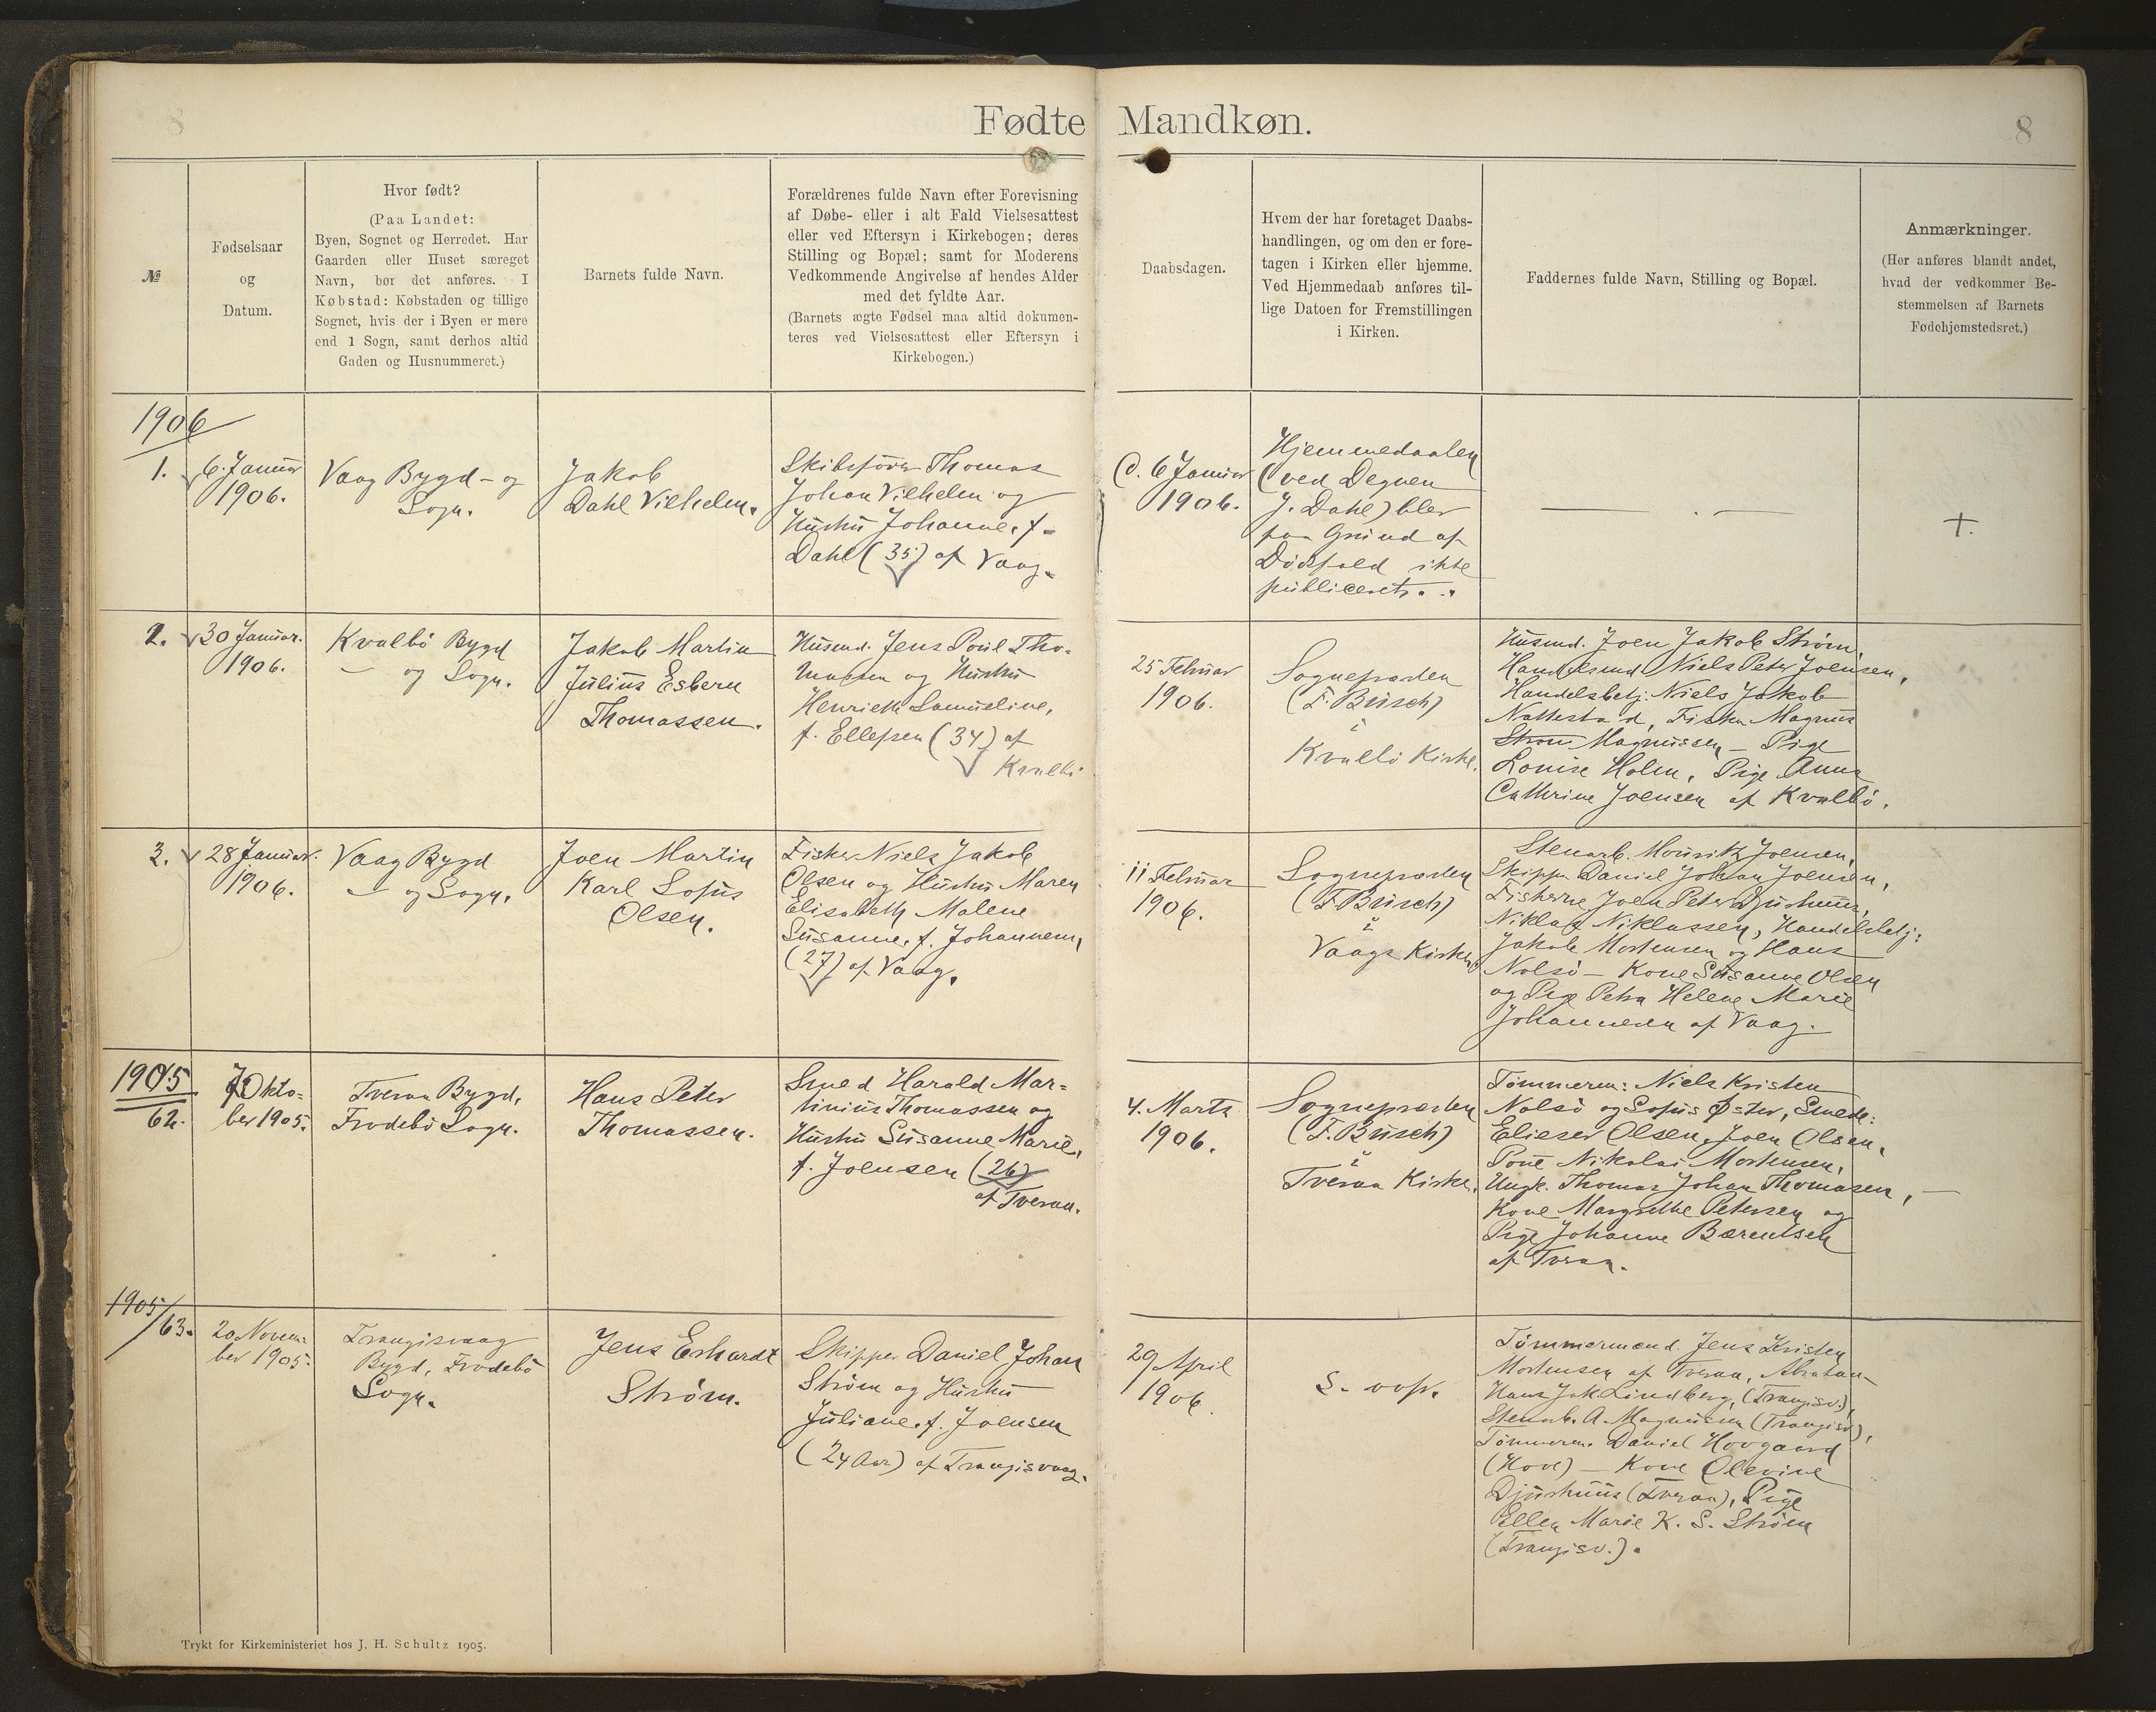 8
Fødte Mandkøn.
8
№
Fødselsaar
og
Datum.
Hvor født?
(Paa Landet:
Byen, Sognet og Herredet. Har
Gaarden eller Huset særeget
Navn, bør det anføres. I
Købstad: Købstaden og tillige
Sognet, hvis der i Byen er mere
end 1 Sogn, samt derhos altid
Gaden og Husnummeret.)
Barnets fulde Navn.
Forældrenes fulde Navn efter Forevisning
af Døbe- eller i alt Fald Vielsesattest
eller ved Eftersyn i Kirkebogen; deres
Stilling og Bopæl; samt for Moderens
Vedkommende Angivelse af hendes Alder
med det fyldte Aar.
(Barnets ægte Fødsel maa altid dokumen-
teres ved Vielsesattest eller Eftersyn i
Kirkebogen.)
Daabsdagen.
Hvem der har foretaget Daabs-
handlingen, og om den er fore-
tagen i Kirken eller hjemme.
Ved Hjemmedaab anføres til-
lige Datoen for Fremstillingen
i Kirken.
Faddernes fulde Navn, Stilling og Bopæl.
Anmærkninger.
(Her anføres blandt andet,
hvad der vedkommer Be-
stemmelsen af Barnets
Fødehjemstedsret.)
1906
1.
6. Januar
1906.
Vaag Bygd - og
Sogn.
Jakob
Dahl Vilhelm.
Skibsfører Thomas
Johan Vilhelm og
Hustru Johanne, f.
Dahl (35) af Vaag.
d. 6 Januar
1906.
Hjemmedaaben
(ved Degnen
J. Dahl) blev
paa Grund af
Dødsfald ikke
publiceret.
†.
2.
30 Januar.
1906.
Kvalbö Bygd
— og Sogn.
Jakob Martin
Julius Esbern
Thomassen.
Husmd. Jens Poul Tho-
massen og Hustru
Henriette Samueline,
f. Ellefsen (34) af
Kvalbö
25 Februar
1906.
Sognepræsten
(F. Busch)
i
Kvalbö Kirke.
Husmd. Joen Jakob Strøm,
Handelsmd Niels Peter Joensen,
Handelsbetj. Niels Jakob
Nattestad, Fisker Magnus
Strøm Magnussen — Pige
Louise Holm, Pige Anna
Cathrine Joensen af Kvalbö.
3.
28 Januar.
1906.
Vaag Bygd
— og Sogn.
Joen Martin
Karl Sofus
Olsen.
Fisker Niels Jakob
Olsen og Hustru Maren
Elisabeth Malene
Susanne, f. Johannesen,
(27) af Vaag.
11 Februar
1906.
Sognepræsten
(F Busch)
i
Vaags Kirke.
Stenarb. Mouritz Joensen,
Skipper Daniel Johan Joensen,
Fiskerne Joen Peter Djurhuus,
Niklas Niklassen, Handelsbetj:
Jakob Mortensen og Hans
Nolsö — Kone Susanne Olsen
og Pige Petra Helene Marie
Johannesen af Vaag.
1905
62.
Okto-
ber 1905.
Tveraa Bygd,
Frodebö Sogn.
Hans Peter
Thomassen.
Smed Harald Mar-
tinius Thomassen og
Hustru Susanne Marie,
f. Joensen (26)
af Tveraa.
4. Marts
1906.
Sognepræsten
(F. Busch)
i
Tveraa Kirke.
Tömmerm: Niels Kristen
Nolsö og Sofus Øster, Smede:
Elieser Olsen, Joen Olsen,
Poul Nikolai Mortensen,
Ungk. Thomas Johan Thomasen,
Kone Margrethe Petersen og
Pige Johanne Bærentsen
af Tveraa.
1905/63.
20 Novem-
ber 1905.
Trangisvaag
Bygd, Frodebö
Sogn.
Jens Erhardt
Strøm.
Skipper Daniel Johan
Strøm og Hustru
Juliane, f. Joensen
(24 Aar) af Trangisvaag.
29 April
1906.
S. ovf.
Tömmermænd. Jens Kristen
Mortensen af Tveraa, Abraham
Hans Jak. Lindberg, (Trangisv.),
Stenarb. A. Magnussen (Trangisv),
Tömmerm. Daniel Hovgaard
(Hove) — Kone Olevine
Djurhuus (Tveraa), Pige
Ellen Marie K. S. Strøm
(Trangisv.).
Trykt for Kirkeministeriet hos J. H. Schultz 1905.